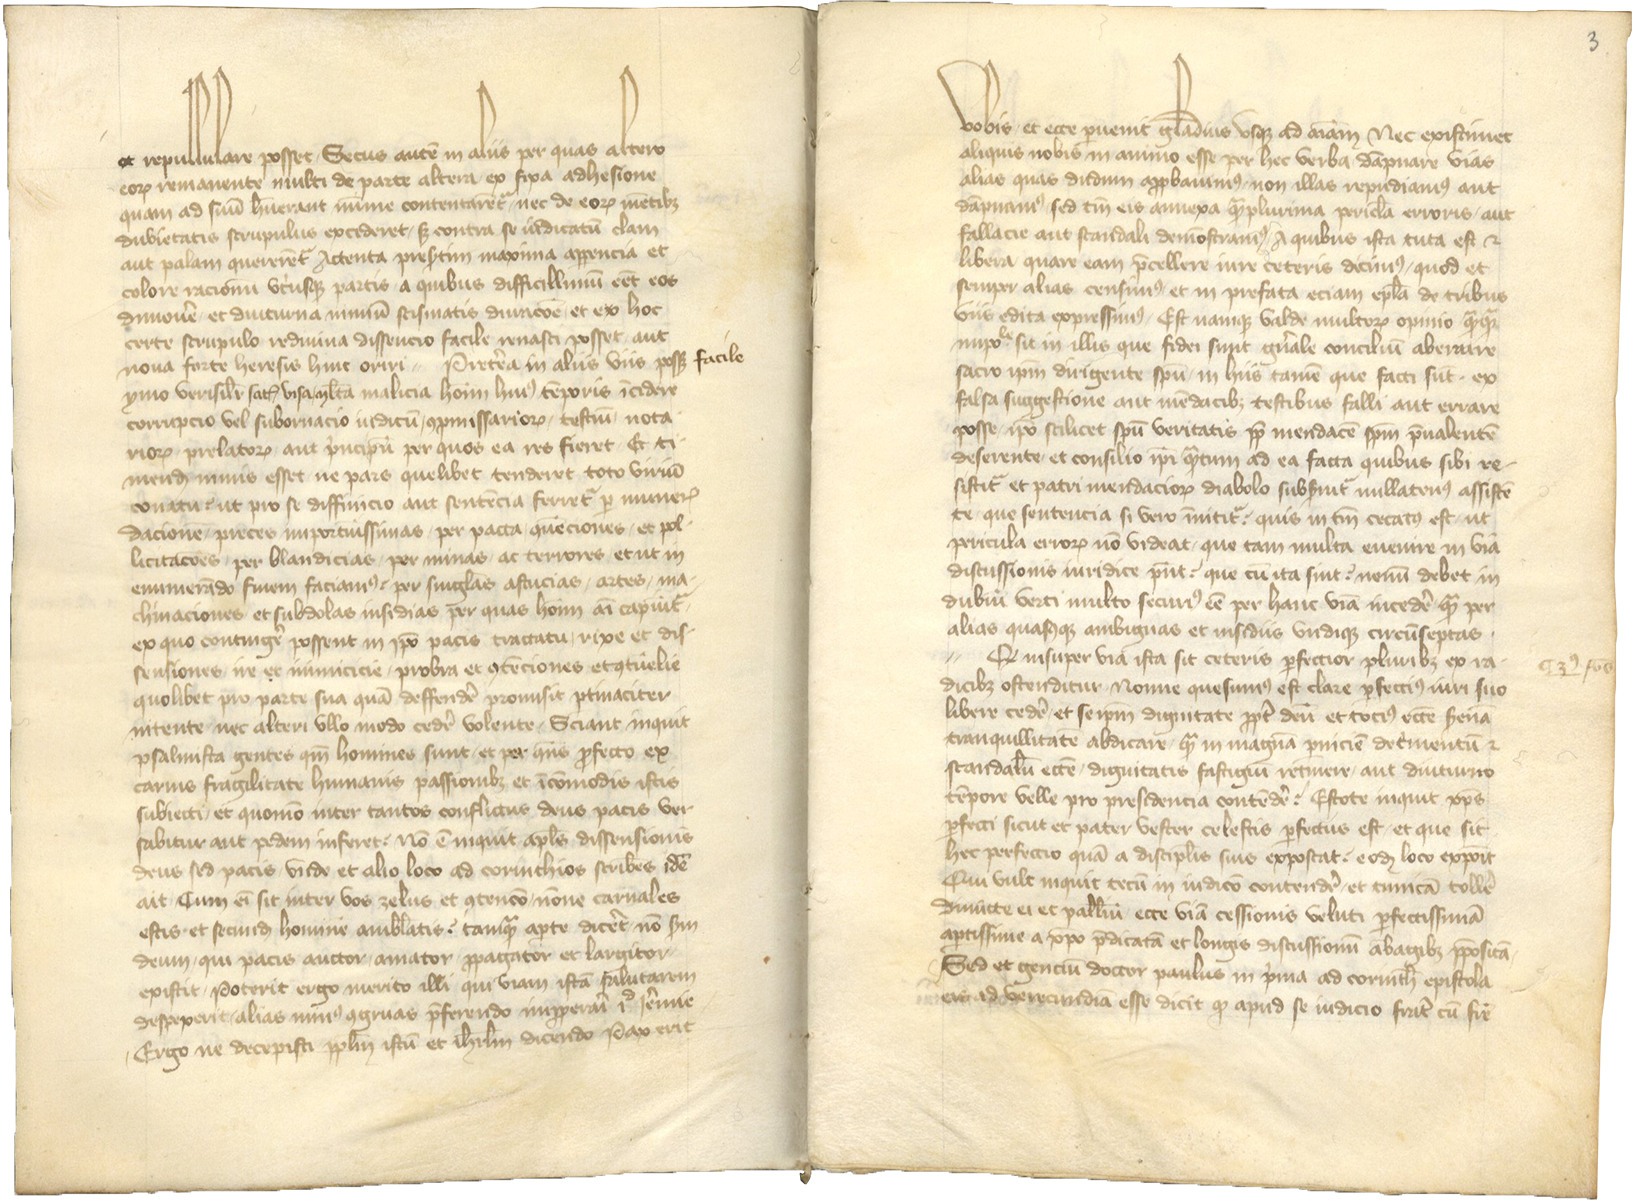 et repullulare posset Secus autē in aliis per quas altero
eorꝝ remanente multi de parte altera ex fixa adhesione
quam ad suū hūerant mīme contentarēt᷑ nec de eorꝝ mētibꝫ
dubietatis scrupulus excideret sꝫ contra se iudicatū clam
aut palam quererēt᷑ Attenta presertim maxima apparencia et
colore racionū utriusqꝫ partis a quibus difficillimū eēt eos
dimovē et diuturna nimiū scismatis duracōe et ex hoc
certe scrupulo rediviva dissencio facile renasci posset aut
nova forte heresis hinc oriri Pretēa in aliis viis possꝫ facile
ymo verisilr malicia hoīm huiꝰ tēporis īcidere
corrupcio vel subornacio iudicū ꝯpmissariorꝝ testiū nota
riorꝝ prelatorꝝ aut pncipū per quos ea res fieret Et ti
mendū nimis esset ne pars quelibet tenderet toto viriū
conatu ut pro se diffinicio aut sentēcia ferret᷑ per munerꝝ
dacione preces importunissimas per pacta et pol
licitacōes per blandicias per minas ac terrores et ut in
enumerādo finem faciamꝰ per singlās astucias artes ma
chinaciones et subdolas insidias per quas hoīm aī capiūt᷑
ex quo contingē possent in ip̄o pacis tractatu rixe et dis
sensiones ire et inimicicie probra et ꝯtēciones et ꝯtūelie
quolibet pro parte sua quā deffendē promisit ptinaciter
nitente nec alteri ullo modo cedē volente Sciant inquit
psalmista gentes qm̄ homines sunt et per hūs profecto ex
carnis fragilitate humanis passionibꝫ et īcōmodis istis
subiecti et quomō inter tantos conflictus deus pacis ver
sabitur aut pedem inferet Nō ē inquit apls dissensionis
deus sed pacis unde et alio loco ad corinthios scribēs idē
ait Cum eī sit inter vos zelus et ꝯtencō nōne carnales
estis et secundū hominē ambulatis tamquā apte dicēt nō scdm
deum qui pacis auctor amator propagator et largitor
existit Poterit ergo merito illi qui viam istā salutarem
despexerit alias minꝰ ꝯgruas pferendo improperari id Ieremie
Ergo ne decepisti pplm istū et ihrlm dicendo Pax erit
3
vobis et ecce pervenit gladius usqꝫ ad aīam Nec existimet
aliquis nobis in animo esse per hec verba dāpnare vias
alias quas dudum approbavimꝰ non illas repudiamꝰ aut
dāpnamꝰ sed tm̄ eis annexa quāplurima pericla erroris aut
fallacie aut scandali demōstramꝰ A quibus ista tuta est ⁊
libera quare eam pcellere iure ceteris dicimꝰ quod et
semper alias censuimꝰ et in prefata eciam epla de tribus
viis edita expressimꝰ Est namqꝫ valde multorꝝ opinio quāquā
impole sit in illis que fidei sunt gnāle conciliū aberrare
sacro ipm̄ dirigente spū in hiis tamē que facti sūt ex
falsa suggestione aut mēdacibꝫ testibus falli aut errare
posse ipō scilicet spū veritatis pp mendacē spm̄ pvalentē
deserente et consilio ipī quātum ad ea facta quibus sibi re
sistit᷑ et patri mendaciorꝝ diabolo subservit᷑ nullatenꝰ assistē
te que sentencia si vero innitit᷑ quis in tm̄ cecatꝰ est ut
pericula errorꝝ nō videat que tam multa evenire in via
discussionis iuridice pnt que cū ita sint nemī debet in
dubiū verti multo securiꝰ eē per hanc viā incedē quā per
alias quasqꝫ ambiguas et insidiis undiqꝫ circūseptas
Et insuper via ista sit ceteris pfectior pluribꝫ ex ra
Cꝫ 3ꝰ
dicibꝫ ostenditur Nonne quesumꝰ est clare pfectiꝰ iuri suo
libere cedē et seipm̄ dignitate pptē deū et totiꝰ eccē serenā
tranquillitatē abdicare quā in magnā pniciē detrimentū ⁊
scandalū eccē dignitatis fastigiū retinere aut diuturno
tēpore velle pro presidencia contēdē Estote inquit xps
pfecti sicut et pater vester celestis pfectus est et que sit
hec perfectio quā a disciplis suis expostat eodꝫ loco exponit
Qui vult inquit tecū in iudicō contendē et tunicā tollē
dimitte ei et palliū ecce viā cessionis veluti pfectissimā
aptissime a xpo pdicatā et longis discussionū ābagibꝫ ppositā
Sed et genciū doctor paulus in pma ad corinth epistola
eis ad verecundiā esse dicit qꝫ apud se iudicio frāt cū frē